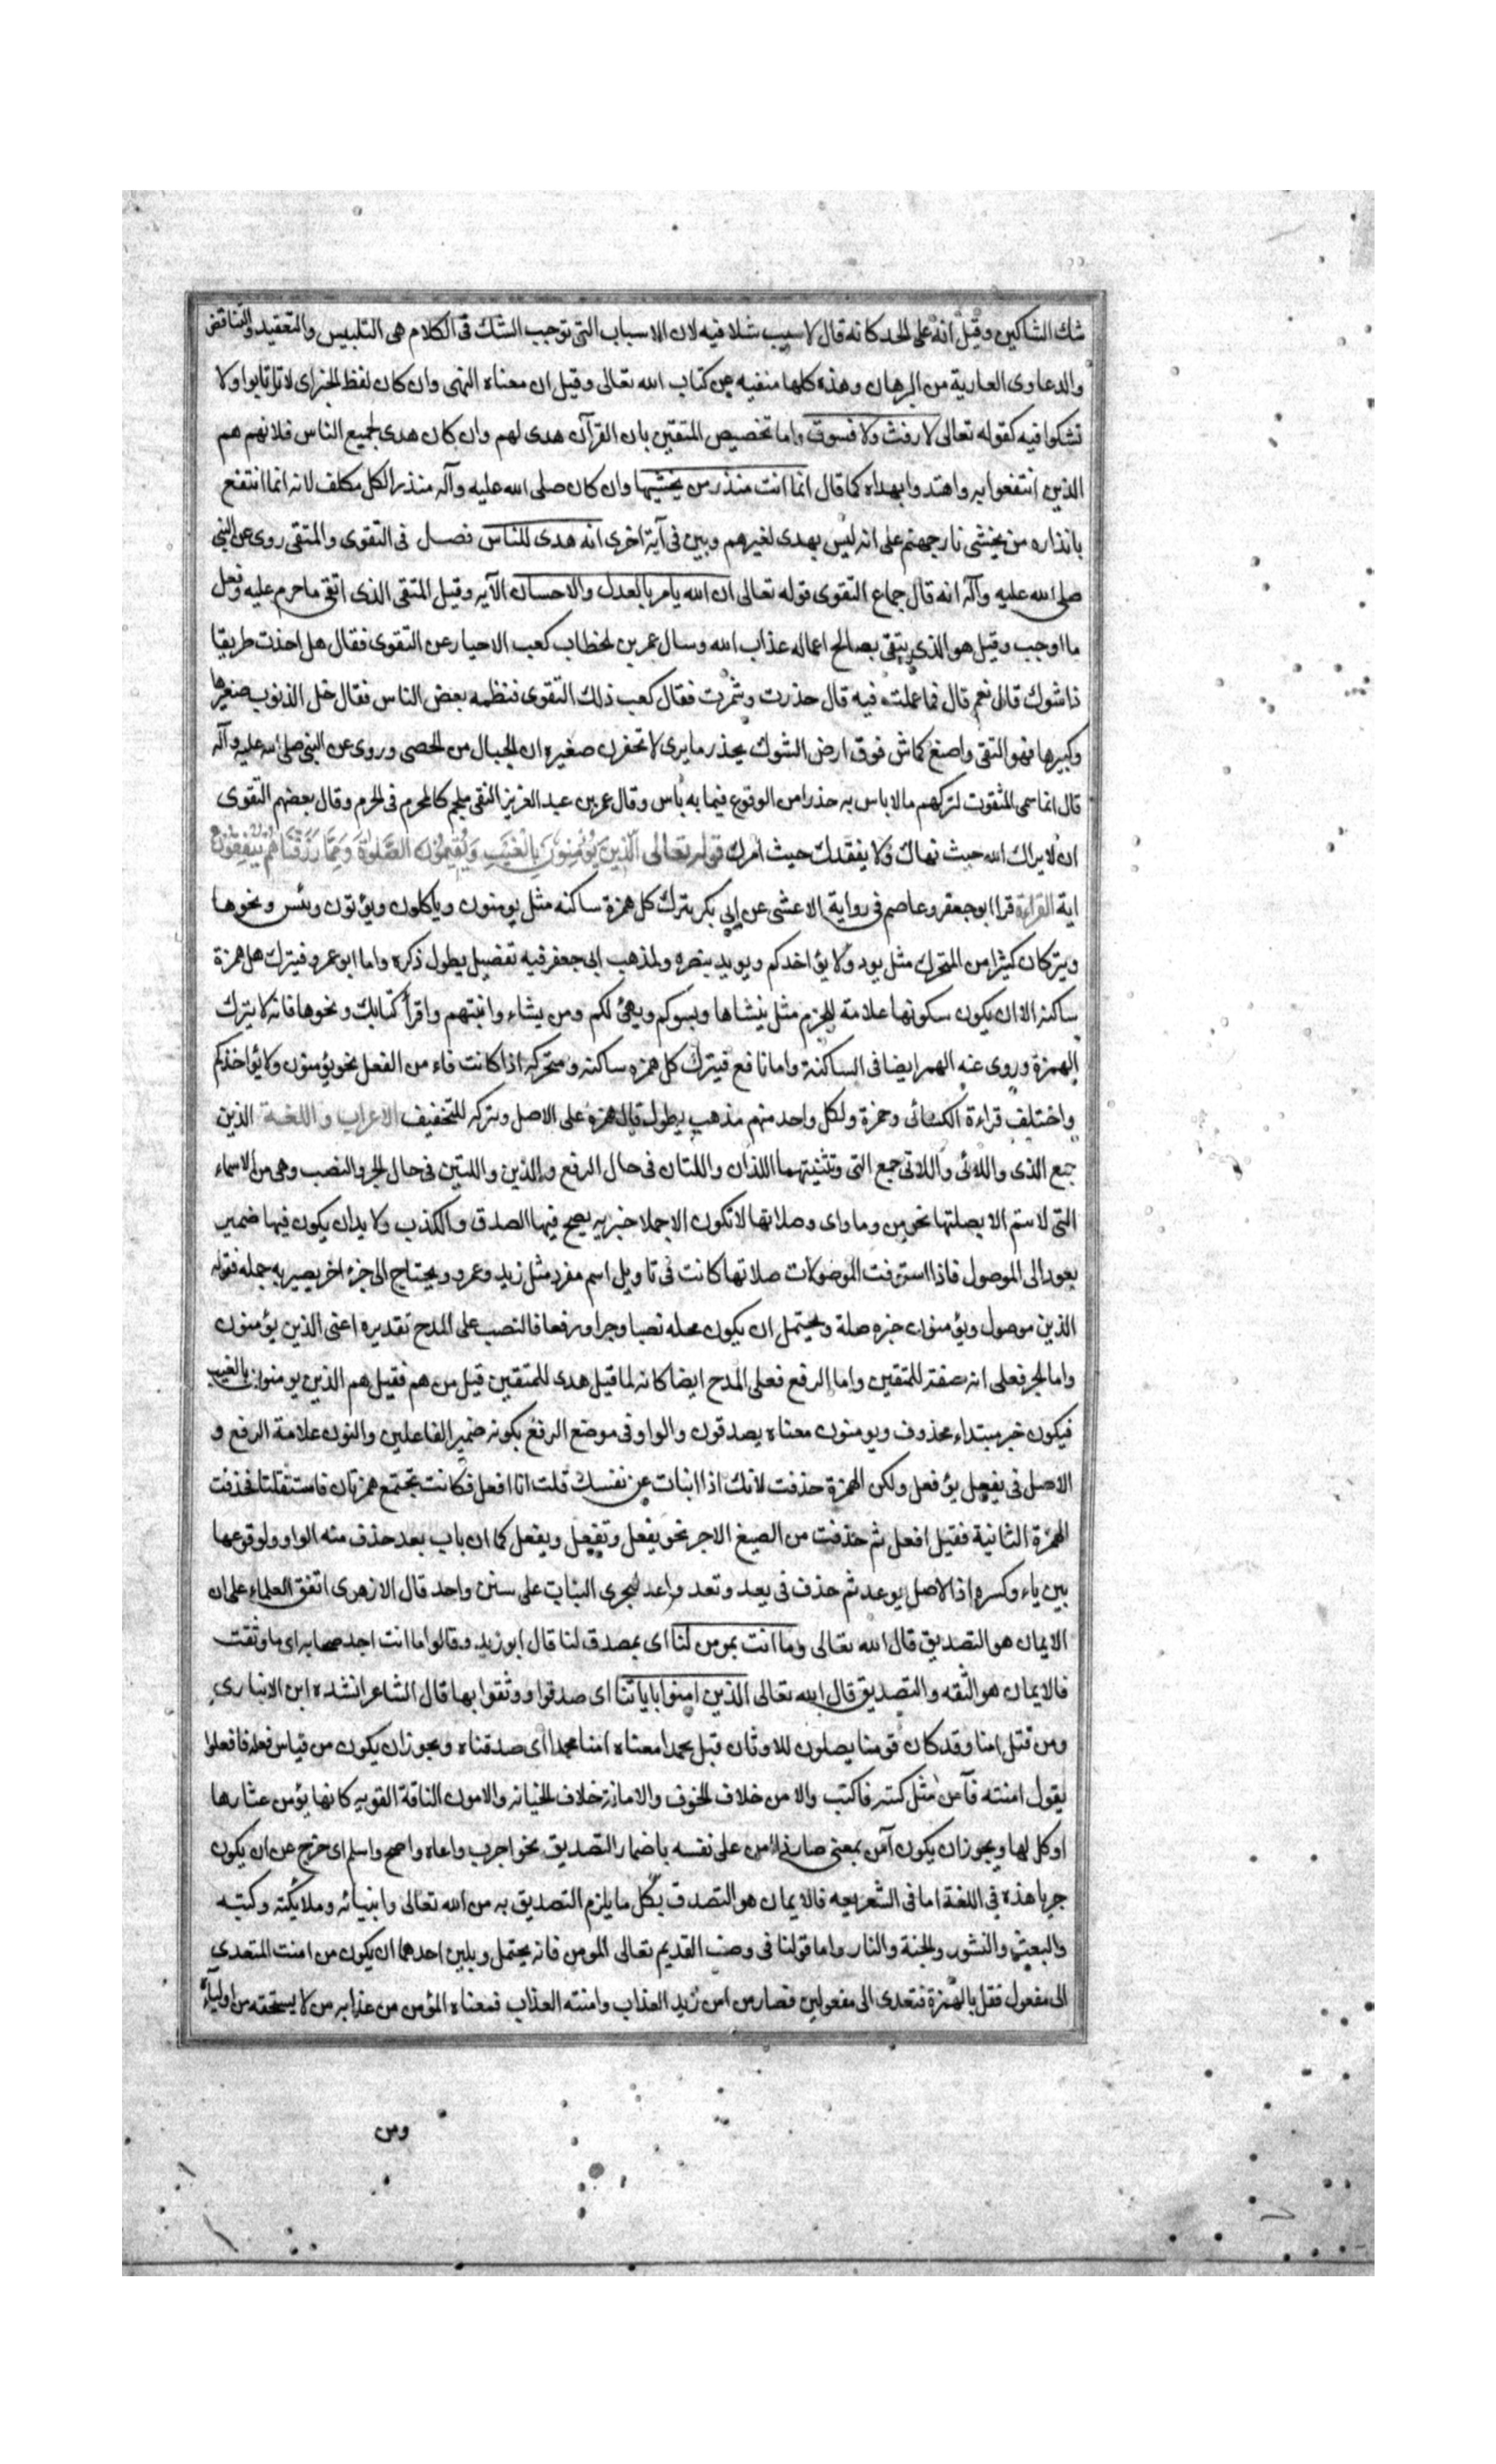 شك الشاكين وقيل انه على الحد كانه قال لا سبب شك فيه لان الاسباب التى توجب الشك فى الكلام هى التلبيس والتعقيد والتناقض
والدعاوى العارية من البرهان وهذه كلها منفيه عن كتاب الله تعالى وقيل ان معناه النهى وان كان لفظ الخبر اى لا ترتابوا ولا
تشكوا فيه كقوله تعالى لا رفث ولا فسوق واما تخصيص المتقين بان القرآن هدى لهم وان كان هدى لجميع الناس فلانهم هم
الذين انتفعوا به واهتدوا بهداه كما قال انما انت منذر من يخشيها وان كان صلى الله عليه وآله منذر الكل مكلف لانه انما انتفع
بانذاره من يخشى نار جهنم على انه ليس بهدى لغيرهم وبين فى آية اخرى انه هدى للناس فصل فى التقوى والمتقى روى عن النبى
صلى الله عليه وآله انه قال جماع التقوى قوله تعالى ان الله يامر بالعدل والاحسان الآيه وقيل المتقى الذى اتقى ما حرم عليه وفعل
ما اوجب وقيل هو الذى يتقى بصالح اعماله عذاب الله وسال عمر بن الخطاب كعب الاحبار عن التقوى فقال هل اخذت طريقا
ذا شوك قال نعم قال فما عملت فيه قال حذرت وشمرت فقال كعب ذلك التقوى فنظمه بعض الناس فقال خل الذنوب صغيرها
وكبيرها فهو التقى واصنع كماش فوق ارض الشوك يحذر ما يرى لا تحقرن صغيره ان الجبال من الحصى وروى عن النبى صلى الله عليه وآله
قال انما سمى المتقون لتركهم ما لا باس به حذرا من الوقوع فيما به باس وقال عمر بن عبد العزيز التقى ملجم كالمحرم فى الحرم وقال بعضهم التقوى
ان لا يراك الله حيث نهاك ولا يفقدك حيث امرك قوله تعالى الَّذِينَ يُؤْمِنُونَ بِالْغَيْبِ وَيُقِيمُونَ الصَّلٰوةَ وَمِمَّا رَزَقْنَاهُمْ يُنْفِقُونَ
اية القراءة قرا ابو جعفر وعاصم فى رواية الاعشى عن ابى بكر بترك كل همزة ساكنه مثل يومنون وياكلون ويؤتون وبئس ونحوها
ويتركان كثيرا من المتحرك مثل يوده ولا يؤاخذكم ويويد بنصره ولمذهب ابى جعفر فيه تفصيل يطول ذكره واما ابو عمرو فيترك هل همزة
ساكنه الا ان يكون سكونها علامة للجزم مثل ينشاها وبسوكم ويهيئ لكم ومن يشاء وانبئهم واقرأ كتابك ونحوها فانه لا يترك
الهمزة وروى عنه الهمز ايضا فى الساكنة واما نافع فيترك كل همزه ساكنه ومتحركه اذا كانت فاء من الفعل نحو يؤمنون ولا يؤاخذكم
واختلف قراءة الكسائى وحمزة ولكل واحد منهم مذهب يطول قال همزه على الاصل وتركه للتخفيف الاعراب واللغة الذين
جمع الذى واللائى واللاتى جمع التى وتثنيتهما اللذان واللتان فى حال الرفع والذين واللتين فى حال الجر والنصب وهى من الاسماء
التى لا ستم الا بصلتها نحو من وما واى وصلاتها لا تكون الا جملا خبريه يصح فيها الصدق والكذب ولا بد ان يكون فيها ضمير
يعود الى الموصول فاذا استوفت الموصولات صلاتها كانت فى تاويل اسم مفرد مثل زيد وعمرو ويحتاج الى جزء اخر يصير به جمله فقوله
الذين موصول ويؤمنون خبره صلة ويحتمل ان يكون محله نصبا وجرا ورفعا فالنصب على المدح تقديره اعنى الذين يؤمنون
واما الجر فعلى انه صفة للمتقين واما الرفع فعلى المدح ايضا كانه لما قيل هدى للمتقين قيل من هم فقيل هم الذين يومنون بالغيب
فيكون خبر مبتداء محذوف ويومنون معناه يصدقون والواو فى موضع الرفع بكونه ضمير الفاعلين والنون علامة الرفع و
الاصل فى يفعل يؤفعل ولكن الهمزة حذفت لانك اذا انبات عن نفسك قلت انا افعل فكانت تجتمع همزتان فاستثقلتا فحذفت
الهمزة الثانية فقيل افعل ثم حذفت من الصيغ الاخر نحو يفعل وتفعل ونفعل كما ان باب يعد حذف منه الواو ولوقوعها
بين ياء وكسره اذ الاصل يوعد ثم حذف فى يعد وتعد واعد ليجرى البناب على سنن واحد قال الازهرى اتفق العلماء على ان
الايمان هو التصديق قال الله تعالى وما انت بمومن لنا اى بمصدق لنا قال ابو زيد وقالوا ما انت اجد صحابه اى ما وثقت
فالايمان هو الثقه والتصديق قال الله تعالى الذين امنوا باياتنا اى صدقوا ووثقوا بها قال الشاعر انشده ابن الانبارى
ومن قبل امنا وقد كان قومنا يصلون للاوثان قبل محمدا معناه امنا محمدا اى صدقناه ويجوز ان يكون من قياس فعله فافعلوا
يقول امنته فآمن مثل كبته فاكتب والامن خلاف الخوف والامانة خلاف الخيانه والامون الناقة القويه كانها يؤمن عثارها
اوكل لها ويجوز ان يكون آمن بمعنى صار ذا امن على نفسه باضمار التصديق نحو اجرب واعاه واصح واسلم اى خرج عن ان يكون
جربا هذه فى اللغة اما فى الشعريعه فالايمان هو التصدق بكل ما يلزم التصديق به من الله تعالى وانبيائه وملايكته وكتبه
والبعث والنشور والجنة والنار واما قولنا فى وصف القديم تعالى المومن فانه يحتمل ويلين احدهما ان يكون من امنت المتعدى
الى مفعول فقل بالهمزة فتعدى الى مفعولين فصار من امن زيد العذاب وامنته العذاب فمعناه المؤمن من عذابه من لا يستحقه من اوليآئه
ومن